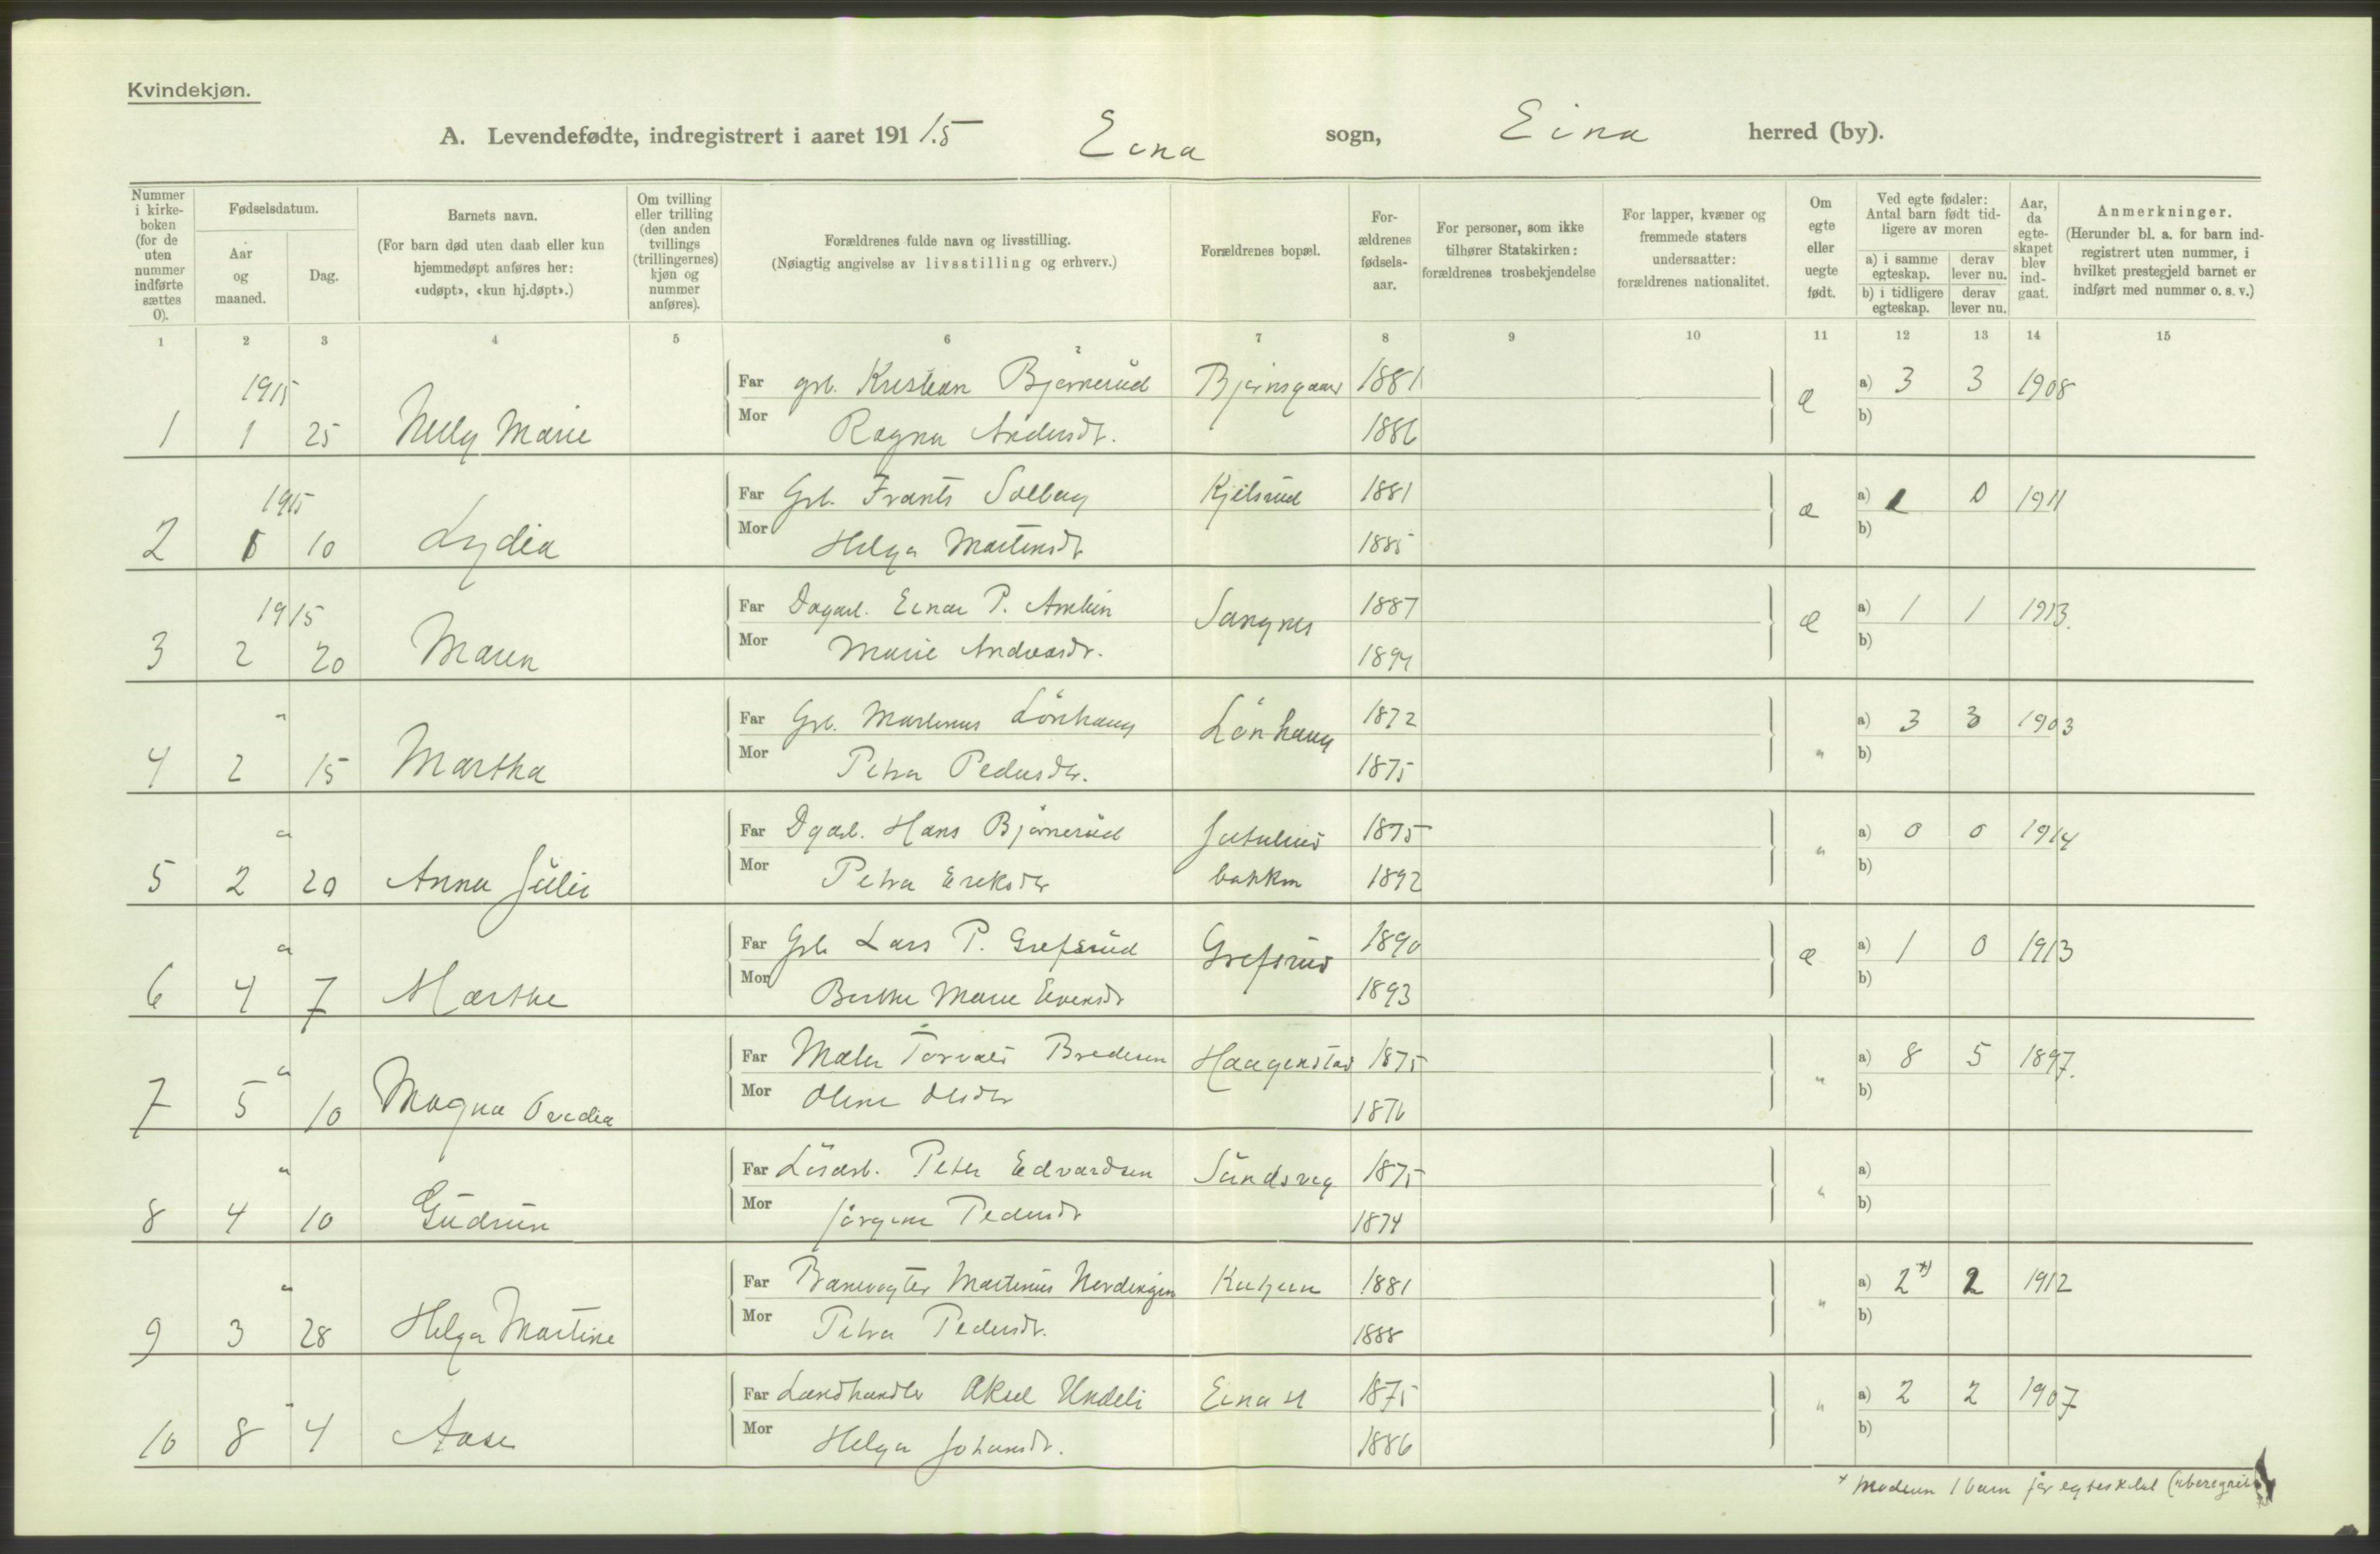 Kvindekjøn.
A. Levendefødte, indregistrert i aaret 191 15 Eina sogn, Eina herred (by).
Nummer i kirke-boken (for de uten nummer indførte sættes 0).
Fødselsdatum.
Aar og maaned.
Dag.
Barnets navn.
(For barn død uten daab eller kun hjemmedøpt anføres her: «udøpt», «kun hj.døpt».)
Om tvilling eller trilling (den anden tvillings (trillingernes) kjøn og nummer anføres).
Forældrenes fulde navn og livsstilling.
(Nøiagtig angivelse av livsstilling og erhverv.)
Forældrenes bopæl.
For-ældrenes fødsels-aar.
For personer, som ikke tilhører Statskirken: forældrenes trosbekjendelse
For lapper, kvæner og fremmede staters undersaatter: forældrenes nationalitet.
Om egte eller uegte født.
Ved egte fødsler: Antal barn født tid-ligere av moren
a) i samme egteskap.
derav lever nu.
b) i tidligere egteskap.
derav lever nu.
Aar, da egte-skapet blev ind-gaat.
Anmerkninger.
(Herunder bl. a. for barn ind-registrert uten nummer, i hvilket prestegjeld barnet er indført med nummer o. s. v.)
1 2 3 4 5 6 7 8 9 10 11 12 13 14 15
1915 Far grb. Kristian Bjørnerud Bjørnsgaard 1881 a) 3 3 1908
1 1 25 Nelly Marie Mor Ragna Andersdt. 1886 æ b)
1915 Far Grb. Frants Solberg Kjelsrud 1881 a) 1 0 1911
2 1 10 Lydia Mor Helga Martinsdt 1885 æ b)
1915 Far Dagarb. Einar P. Sangnes 1887 a) 1 1 1913.
3 2 20 Maren Mor Marie Andreasdt. 1894 æ b)
" Far Grb. Martinus Lønhaug Lønhaug 1872 a) 3 3 1903
4 2 15 Martha Mor Petra Pedersdtr. 1875 " b)
" Far Dgarb. Hans Bjørnerud 1875 a) 0 0 1914
5 2 20 Anna Julie Mor Petra Eriksdtr bakken 1892 " b)
" Far Grb Lars P. Grefsrud Grefsrud 1890 a) 1 0 1913
6 4 7 Marthe Mor Berthe Marie Evensdt 1893 æ b)
" Far Maler Torvald Bredesen Haagenstad 1875 a) 8 5 1897.
7 5 10 Magna Ovedia Mor Oline Olsdtr 1876 " b)
" Far Løsarb. Peter Edvardsen Sundsveg 1875 a)
8 4 10 Gudrun Mor Jørgine Pedersdt 1874 " b)
" Far Banevogter Martinus Nordengen 1881 a) 2 x) 2 1912
9 3 28 Helga Martine Mor Petra Pedersdt. 1888 " b)
" Far Landhandler Aksel Undeli Eina st 1875 a) 2 2 1907
10 8 4 Aase Mor Helga Johansdt. 1886 " b)
x Moderen 1 barn før egteskabet (uberegnet)